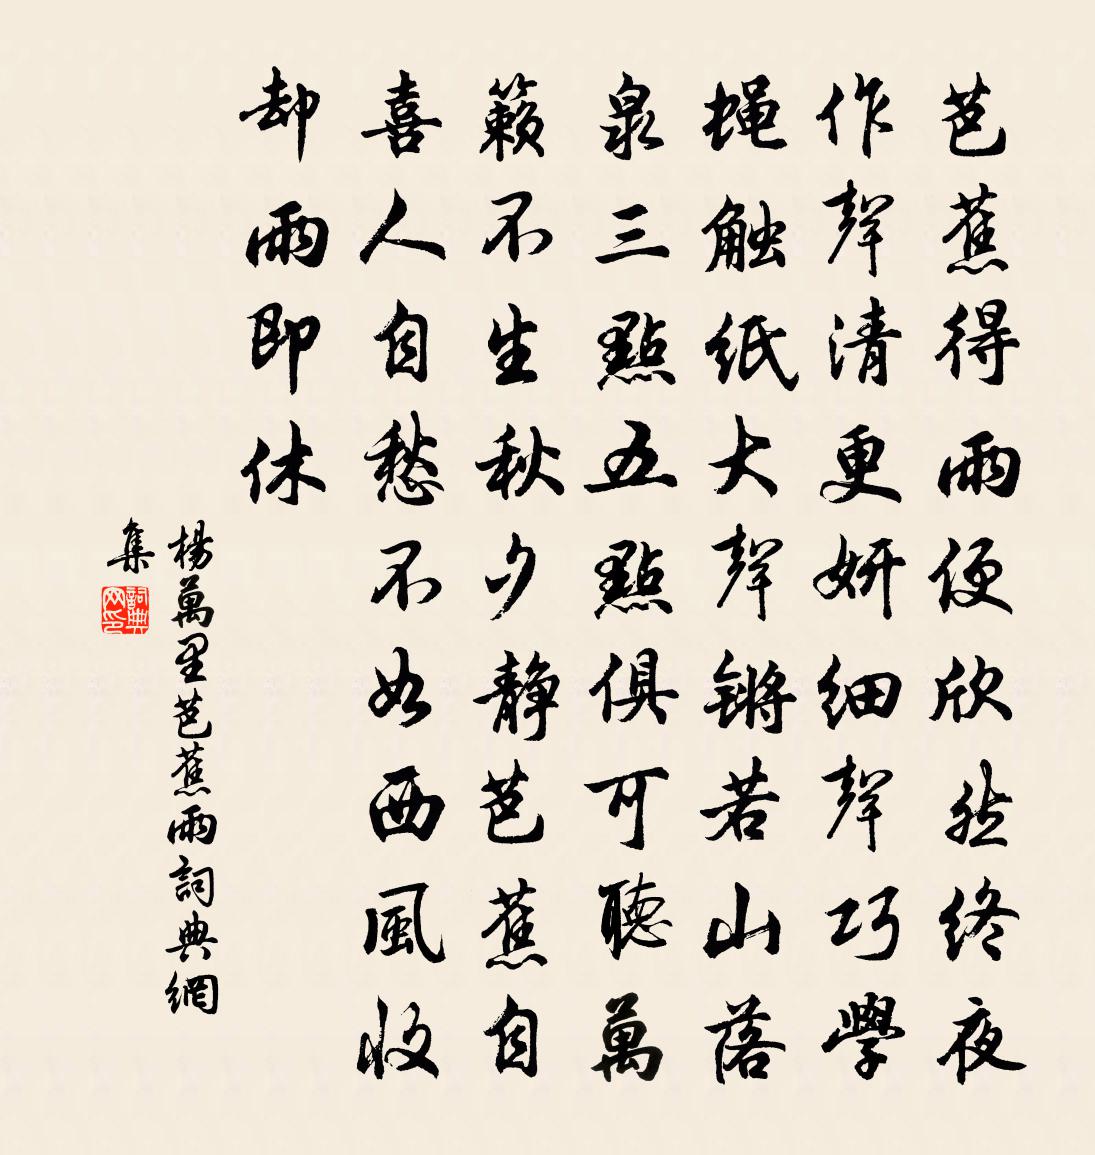 芭蕉得雨便欣然終夜
作聲清更妍細聲巧學
蝇触紙大聲鏘若山落
泉三點五點俱可聽萬
籟不生秋夕静芭蕉自
喜人自愁不如西風收
却雨即休
楊萬里芭蕉雨詞典網
集
詞典网印